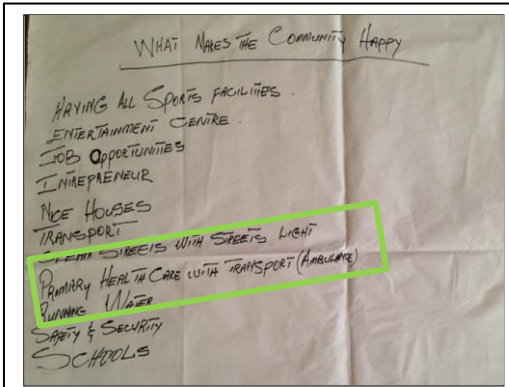 WHAT MAKES THE COMMUNITY HAPPY
HAVING ALL SPORTS FACILITIES.
ENTERTAINMENT CENTRE.
JOB OPPORTUNITIES
INTREPRENEUR
NICE HOUSES
TRANSPORT
CLEAN STREETS WITH STREETS LIGHT
PRIMARY HEALTH CARE WITH TRANSPORT (AMBULANCE)
RUNNING WATER
SAFETY & SECURITY
SCHOOLS